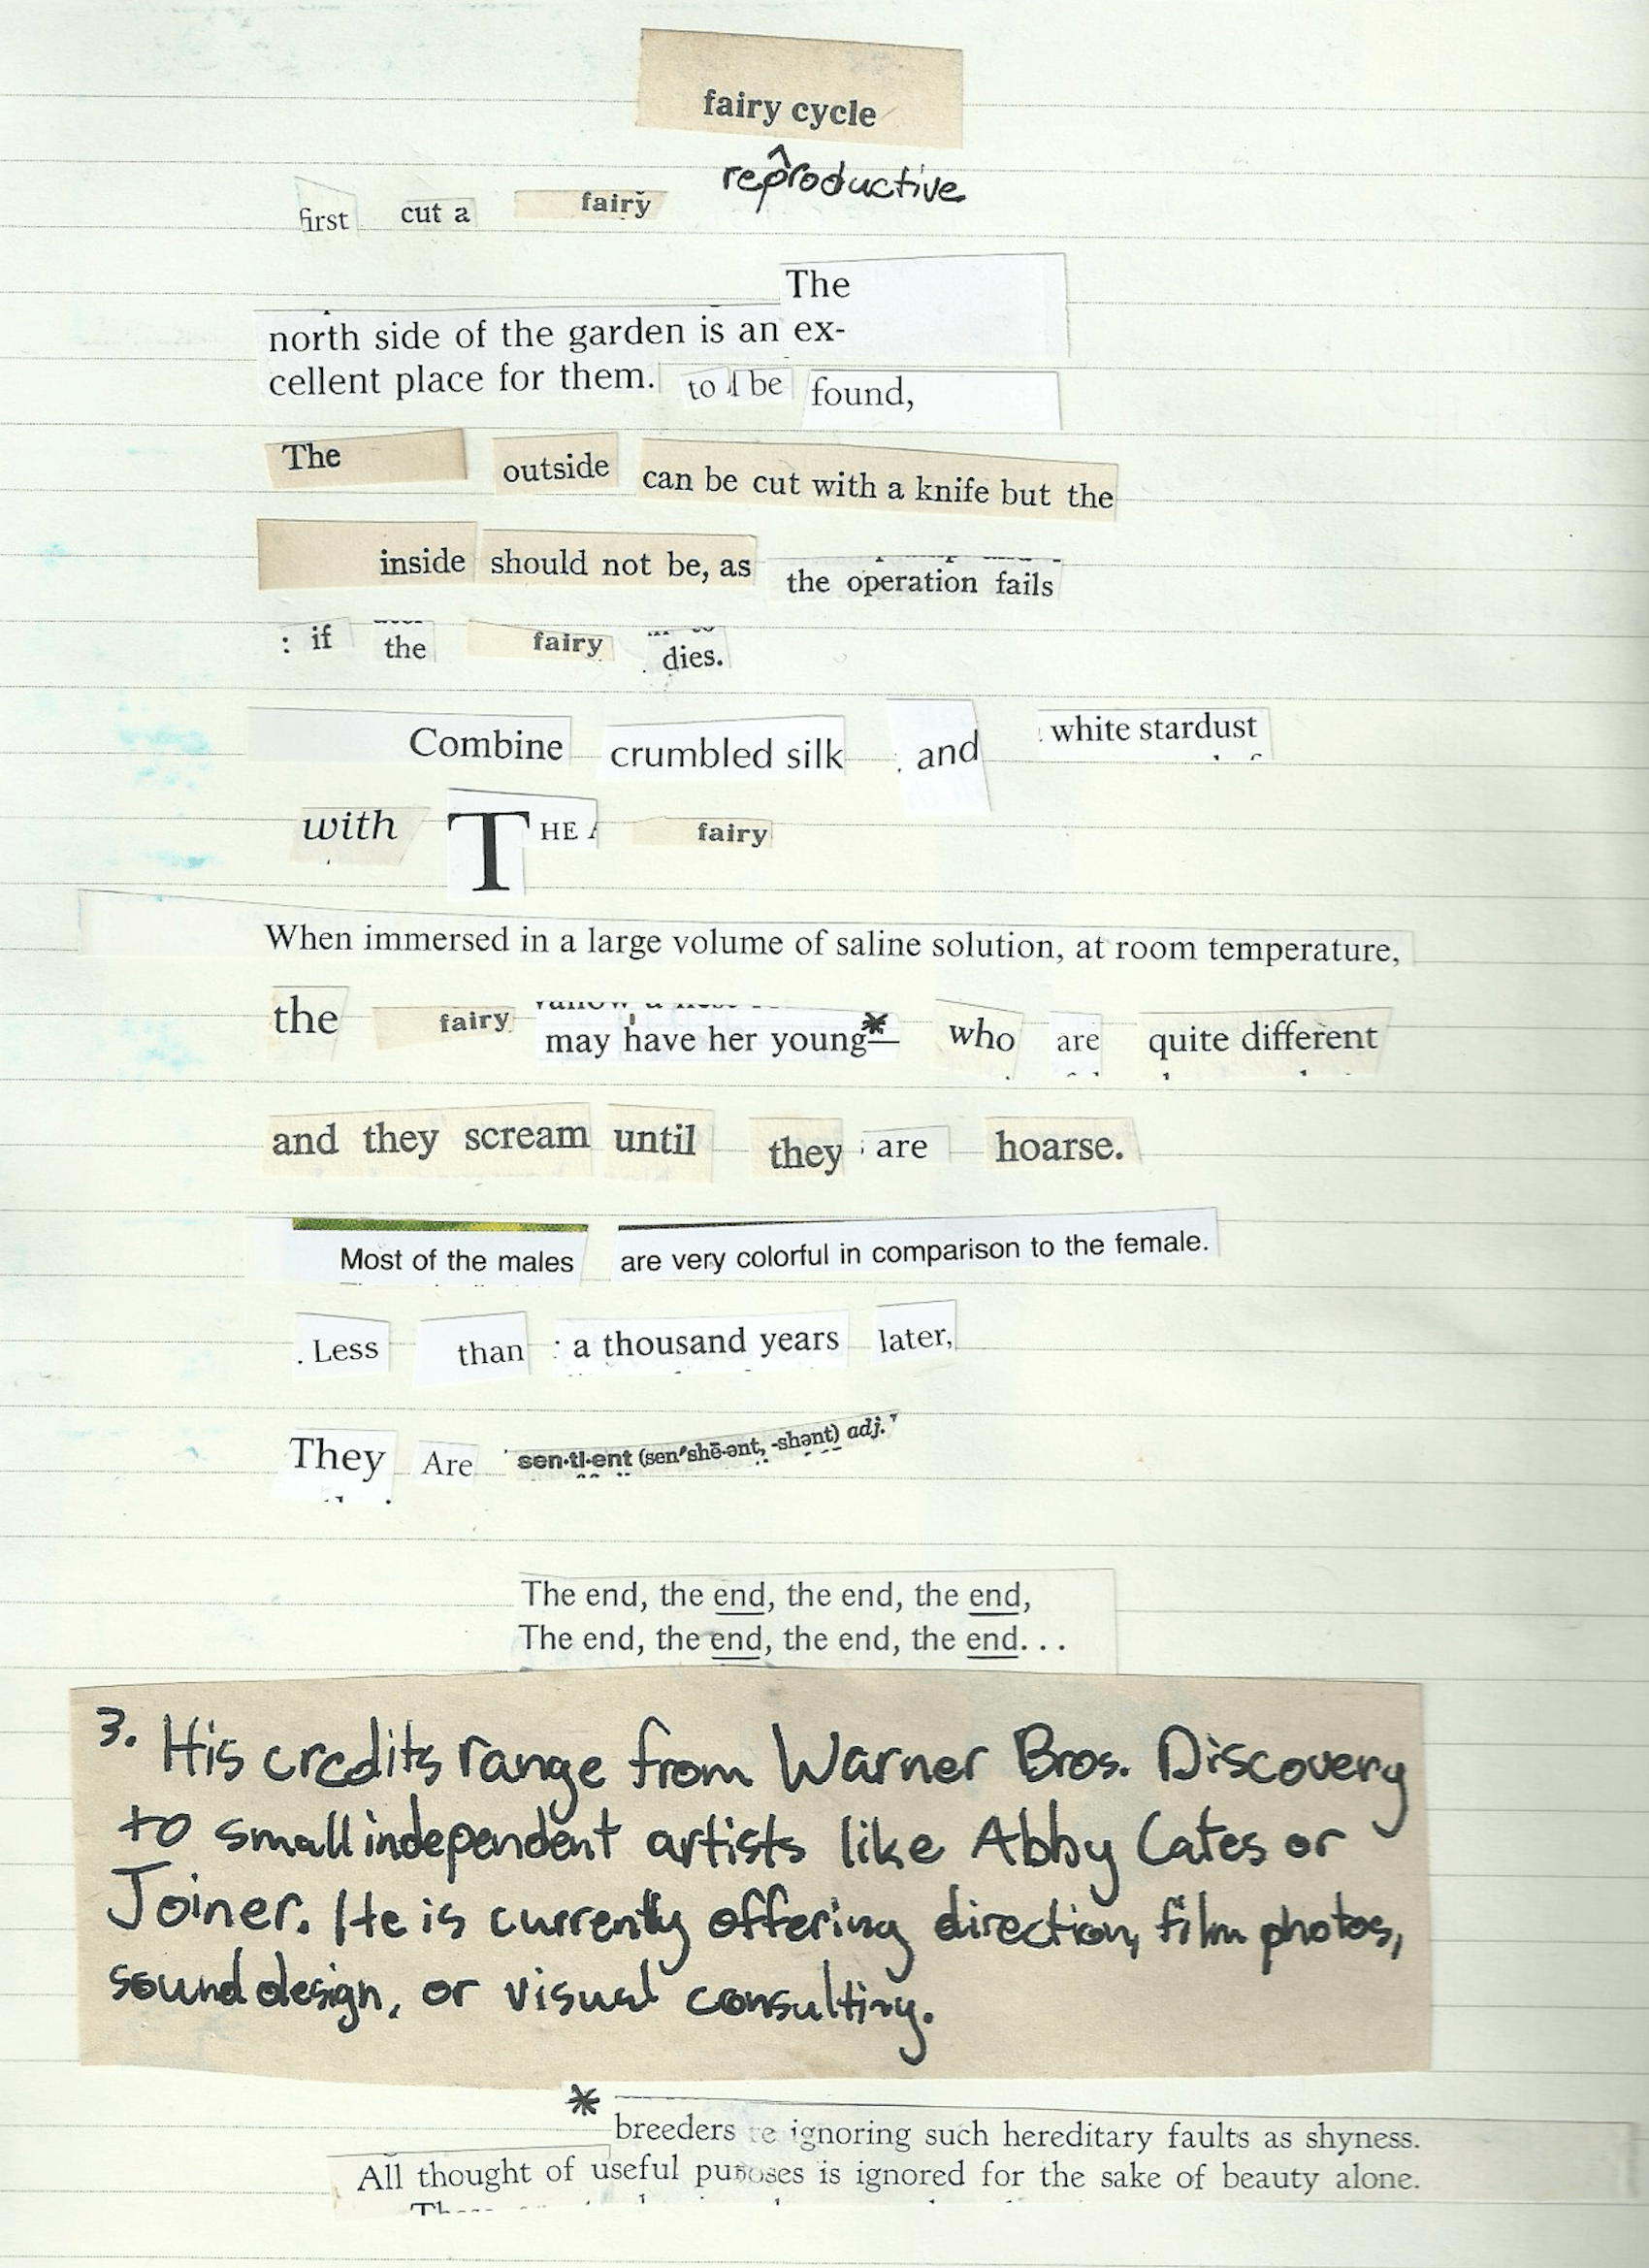 fairy cycle
^
reproductive
first cut a fairy
The
north side of the garden is an ex-
cellent place for them. to be found,
The outside can be cut with a knife but the
inside should not be, as the operation fails
: if the fairy dies.
Combine crumbled silk and white stardust
with THE fairy
When immersed in a large volume of saline solution, at room temperature,
the fairy may have her young* who are quite different
and they scream until they are hoarse.
Most of the males are very colorful in comparison to the female.
. Less than a thousand years later,
They Are sen·ti·ent (sen′shē·ənt, -shənt) adj.
The end, the end, the end, the end,
The end, the end, the end, the end. . .
3. His credits range from Warner Bros. Discovery
to small independent artists like Abby Cates or
Joiner. He is currently offering direction, film photos,
sound design, or visual consulting.
*
breeders re ignoring such hereditary faults as shyness.
All thought of useful purposes is ignored for the sake of beauty alone.